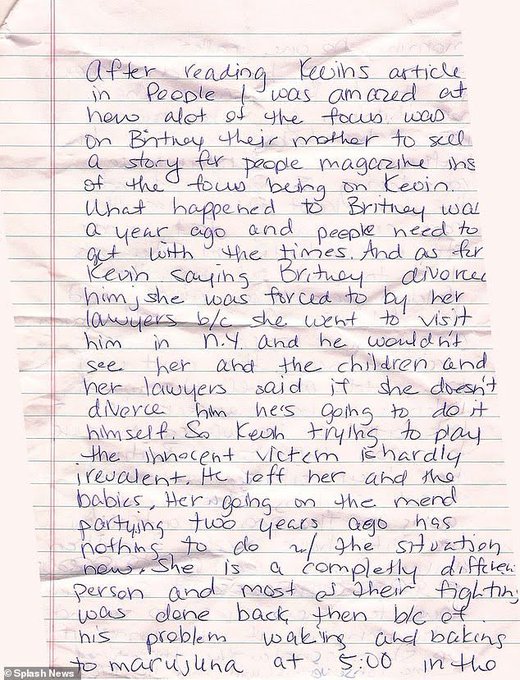 After reading Kevins article
in People I was amazed at
how alot of the focus was
on Britney their mother to sell
a story for people magazine ins
of the focus being on Kevin.
What happened to Britney was
a year ago and people need to
get with the times. And as for
Kevin saying Britney divorced
him, she was forced to by her
lawyers b/c she went to visit
him in N.Y. and he wouldn't
see her and the children and
her lawyers said if she doesn't
divorce him he's going to do it
himself. So Kevin trying to play
the innocent victem is hardly
irevalent. He left her and the
babies. Her going on the mend
partying two years ago has
nothing to do w/ the situation
now. She is a completly differen
person and most of their fighting
was done back then b/c of
his problem waking and baking
to marujuna at 5:00 in the
© Splash News